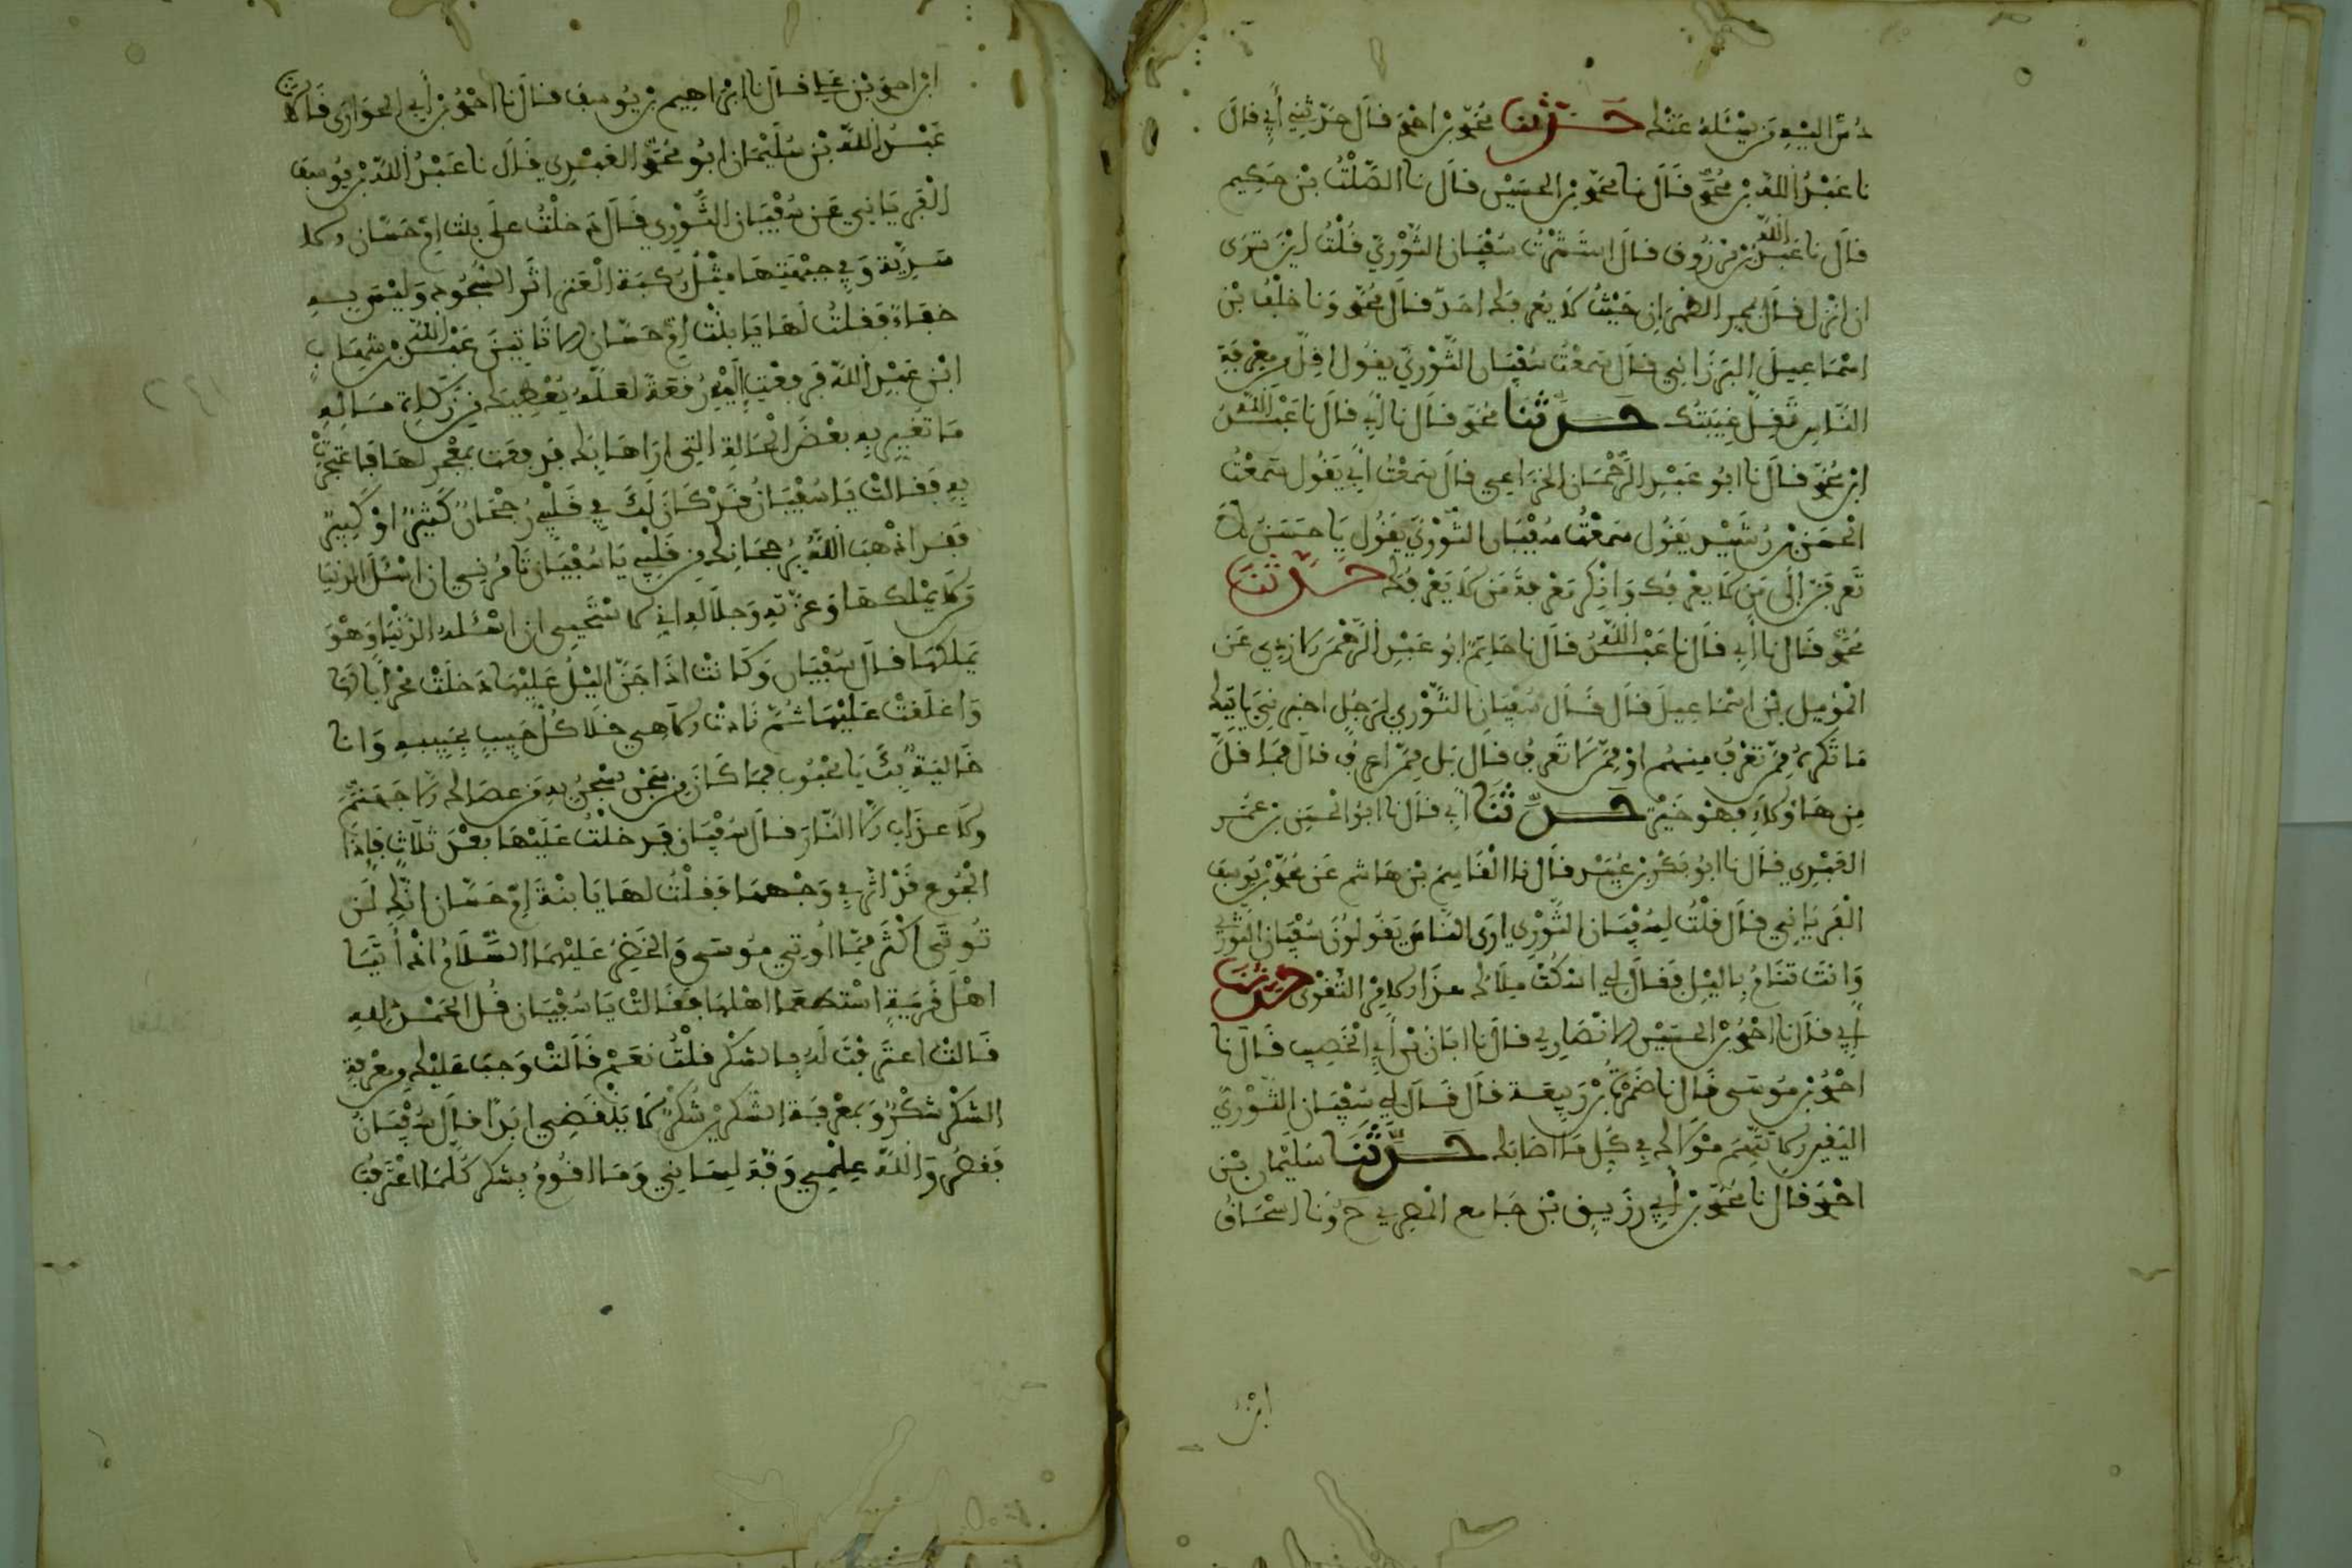 اليه من يسئله عنك حدثنا محمد بن احمد قال حدثني أبي قال
نا عبد الله بن محمد قال نا محمد بن الحسين قال نا الصلت بن حكيم
قال نا عبد الله بن مرزوق قال استشرت سفيان الثوري قلت اين ترى
ان انزل قال بمر الظهران حيث لا يعرفك احد قال محمد ونا خلف بن
اسماعيل البرزاني قال سمعت سفيان الثوري يقول اقل من معرفة
الناس تقل غيبتك حدثنا محمد قال نا أبي قال نا عبد الله
ابن محمد قال نا ابو عبد الرحمان الخزاعي قال سمعت أبي يقول سمعت
الحسن بن رشيد يقول سمعت سفيان الثوري يقول يا حسن لا
تعرفن إلى من لا يعرفك وانكر معرفة من لا يعرفك حدثنا
محمد قال نا أبي قال نا عبد الله قال نا حاتم ابو عبد الرحمن الازدي عن
المؤمل بن اسماعيل قال قال سفيان الثوري لرجل اخبرني
ما تكره ممن تعرف منهم او ممن لا تعرف قال بل ممن اعرف قال فما قل
من هاؤلاء فهو خير حدثنا أبي قال نا ابو الحسن بن
العبدي قال نا ابو بكر بن عبيد قال نا القاسم بن هاشم عن محمد بن يوسف
الفريابي قال قلت لسفيان الثوري ارى الناس يقولون سفيان الثوري
وانت تنام بالليل فقال لي اسكت ملاك هذا الامر التقوى حدثنا
أبي قال نا احمد بن الحسين الانصاري قال نا ابان بن أبي الخصيب قال نا
احمد بن موسى قال نا ضمرة بن ربيعة قال قال لي سفيان الثوري
اليقين الا تتهم مولاك في كل ما اصابك حدثنا سليمان بن
احمد قال نا محمد بن أبي رزيق بن جامع المصري ح ونا اسحاق
ابن
ابن احمد بن علي قال نا ابراهيم بن يوسف قال نا احمد بن أبي الحوارى قالا نا
عبد الله بن سليمان ابو محمد العبدي قال نا عبد الله بن يوسف
الفريابي عن سفيان الثوري قال دخلت على بنت ام حسان الا
سدية وفي جبهتها مثل ركبة العنز اثر السجود وليس به
خفاء فقلت لها يا بنت ام حسان الا تاتين عبد الله بن شهاب
ابن عبد الله فرفعت اليه رقعة لعله يعطيك من زكاة ماله
ما تغيرين به بعض الحالة التي اراها بك فدعت بمعجر لها فاعتجرت
به فقالت يا سفيان قد كان لك في قلبي رجحان كثير او كبير
فقد اذهب الله برجحانك من قلبي يا سفيان تامرني ان اسئل الدنيا
من لا يملكها وعزته وجلاله اني لاستحيي ان اسئله الدنيا وهو
يملكها قال سفيان وكانت اذا جن اليل عليها دخلت محرابا لها
واغلقت عليها ثم نادت الاهي خلا كل حبيب بحبيبه وانا
خالية بك يا محبوب فما كان من سجن تسجن به من عصاك الا جهنم
ولا عذاب الا النار قال سفيان فدخلت عليها بعد ثلاث فاذا
الجوع قد اثر في وجهها فقلت لها يا بنت ام حسان انك لن
تؤتى اكثر مما اوتي موسى والخضر عليهما السلام اذ أتيا
اهل قرية استطعما اهلها فقالت يا سفيان قل الحمد لله
قالت اعترفت له بالشكر قلت نعم قالت وجب عليك من معرفة
الشكر شكر وبمعرفة الشكرين شكر لا ينقضي ابدا قال سفيان
فقصر والله علمي وفي لساني وما اقوم بشكر كلما اعترفت